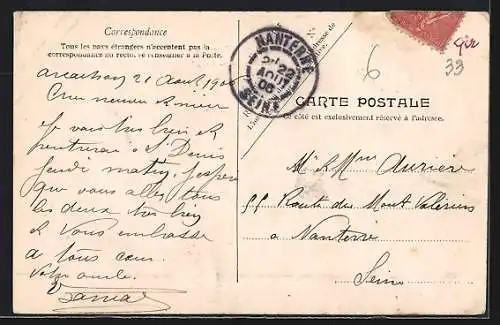 Correspondance
Tous les pays étrangers n'acceptent pas la
correspondance au recto, se renseigner à la Poste.
Arcachon 21 Août
Je vais très bien et
rentrerai à St Denis
jeudi matin. J'espère
que vous allez tous
les deux très bien
et vous embrasse
de tout cœur.
NANTERRE
22
AOUT
06
SEINE
CARTE POSTALE
Ce côté est exclusivement réservé à l'adresse.
Gir
6
33
Mr & Mme
Route du Mont Valérien
à Nanterre
Seine